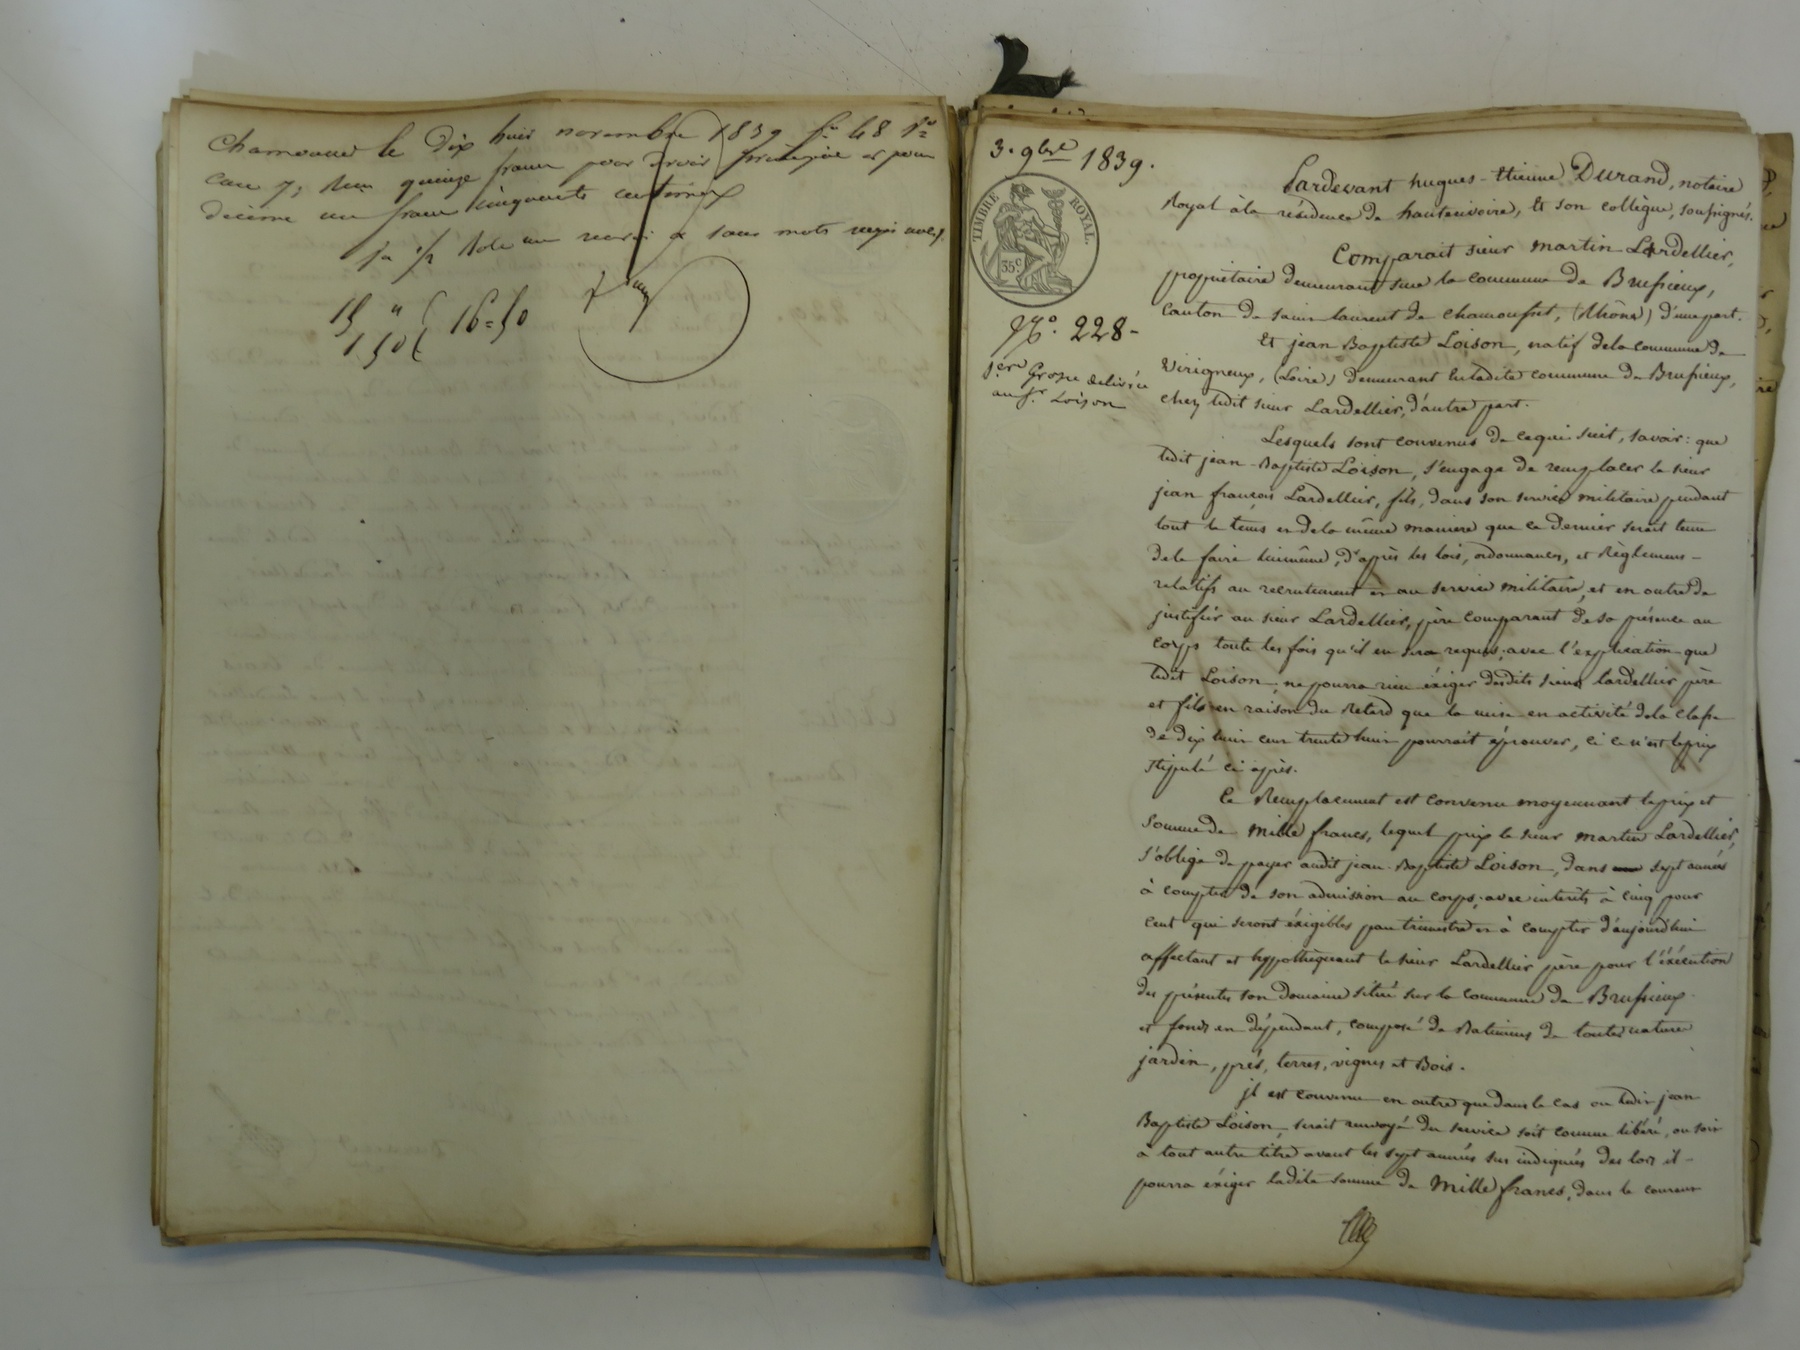 le Dix huit novembre 1839 f.o 48 r.o
Case 7; Reçu quinze francs pour droit principal et pour
décime un franc cinquante centimes
15 "
1 50
16=50
3. 9bre 1839.
TIMBRE ROYAL.
35c
N.o 228-
1ere Grosse délivrée
au Sr. Loison
Pardevant hugues-Etienne Durand, notaire
Royal à la résidence de hauterivoire, et son collègue, soussignés.
Comparait sieur martin Lardellier,
propriétaire demeurant sur la commune de Brussieux,
Canton de saint laurent de chamousset, (Rhône) d'une part.
Et jean Baptiste Loison, natif dela commune de
Virigneux, (Loire) demeurant en ladite commune de Brussieux,
chez ledit sieur Lardellier, d'autre part.
Lesquels sont convenus de cequi suit, savoir: que
ledit jean-Baptiste Loison, s'engage de remplacer le sieur
jean françois Lardellier, fils, dans son service militaire pendant
tout le tems et dela même maniere que ce dernier serait tenu
dele faire luimême, d'après les lois, ordonnances, et Règlemens-
relatifs au recrutement et au service militaire, et en outre de
justifier au sieur Lardellier, père comparant de sa présence au
corps toute les fois qu'il en sera requis, avec l'explication que
ledit Loison, ne pourra rien éxiger desdits sieurs lardellier père
et fils en raison du Retard que la mise en activité dela classe
de dix huit cent trente huit pourrait éprouver, si ce n'est leprix
stipulé ci après.
Ce Remplacement est convenu moyennant leprix et
somme de Mille francs, lequel prix le sieur martin Lardellier,
s'oblige de payer audit jean-Baptiste Loison, dans sept années
à compter de son admission au corps, avec intérêts à cinq pour
cent qui seront éxigibles par trimestre et à compter d'aujourd'hui
affectant et hypothèquant le sieur Lardellier père pour l'éxécution
des présentes son Domaine situé sur la commune de Brussieux
et fonds en dépendant, composé de Batimens de toutes nature
jardin, prés, terres, vignes et Bois.
jl est convenu en outre que dans le cas ou ledit jean
Baptiste Loison, serait renvoyé du service soit comme libéré, ou soit
à tout autre titre avant les sept années sus indiquées des lors il-
pourra éxiger ladite somme de Mille francs, dans le courant